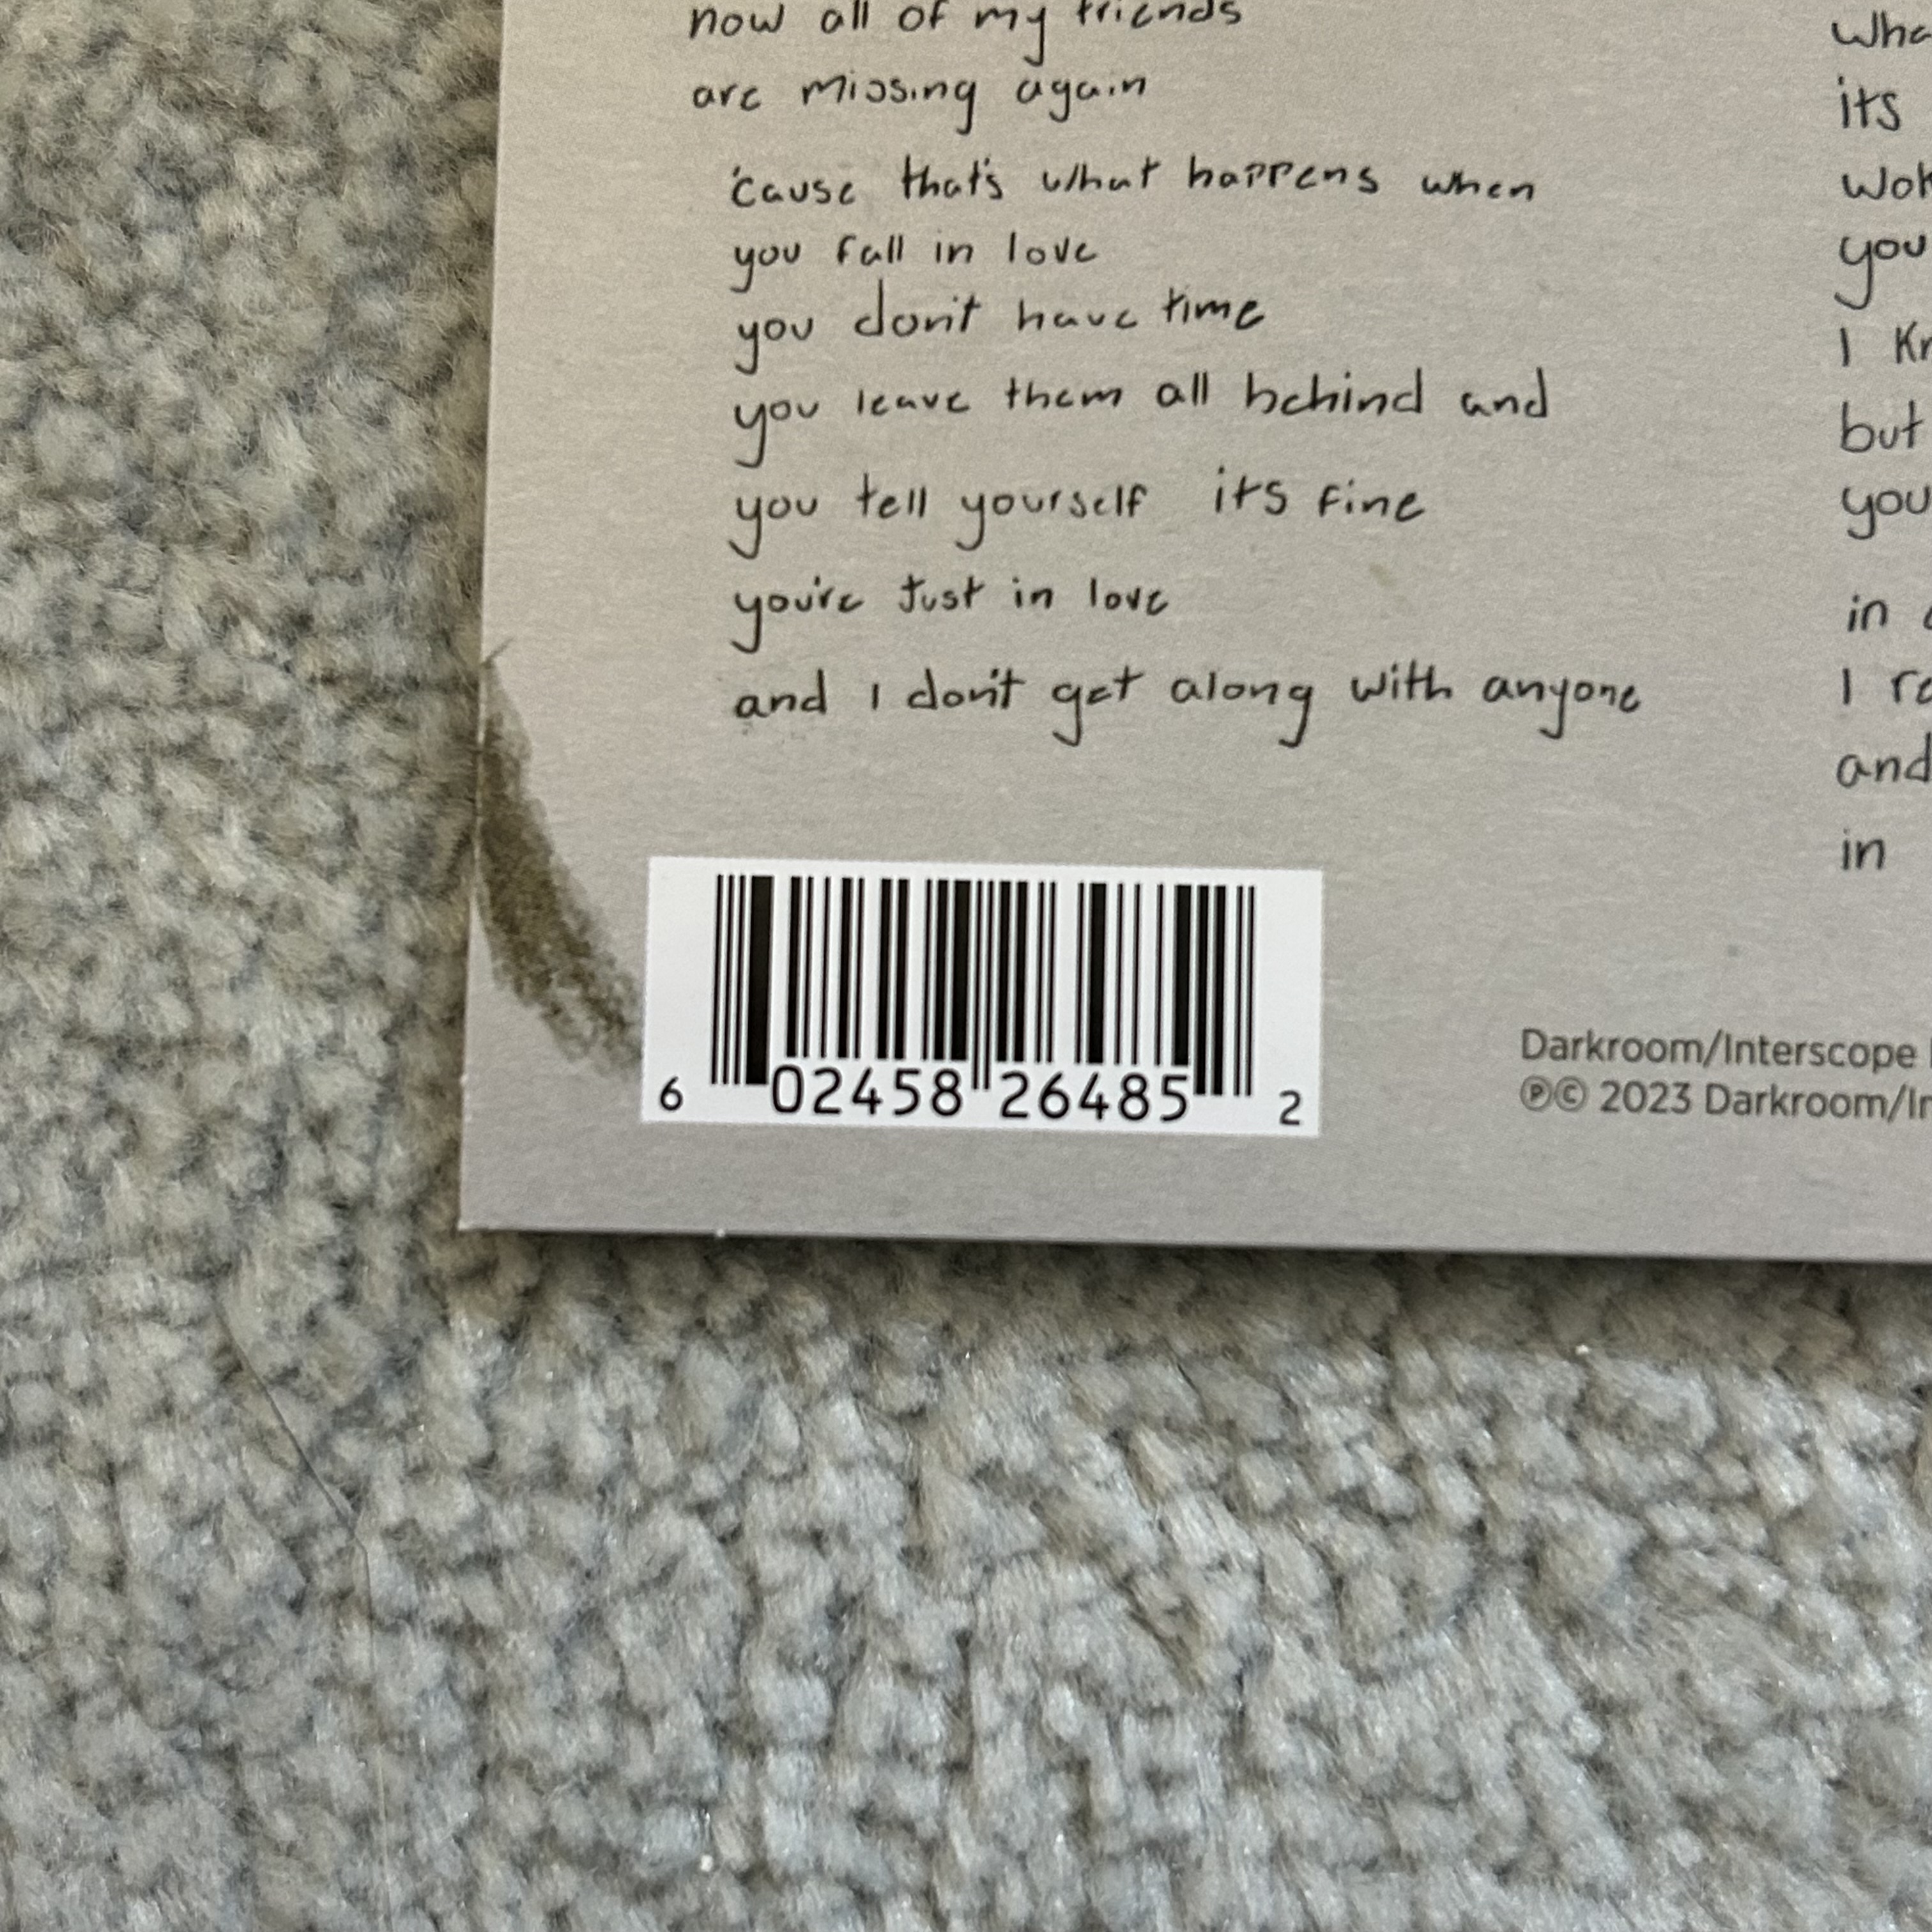 now all of my friends
are missing again
'cause that's what happens when
you fall in love
you don't have time
you leave them all behind and
you tell yourself its fine
you're just in love
and I don't get along with anyone
its
you
but
you
in
I
and
in
6 02458 26485 2
Darkroom/Interscope
℗© 2023 Darkroom/